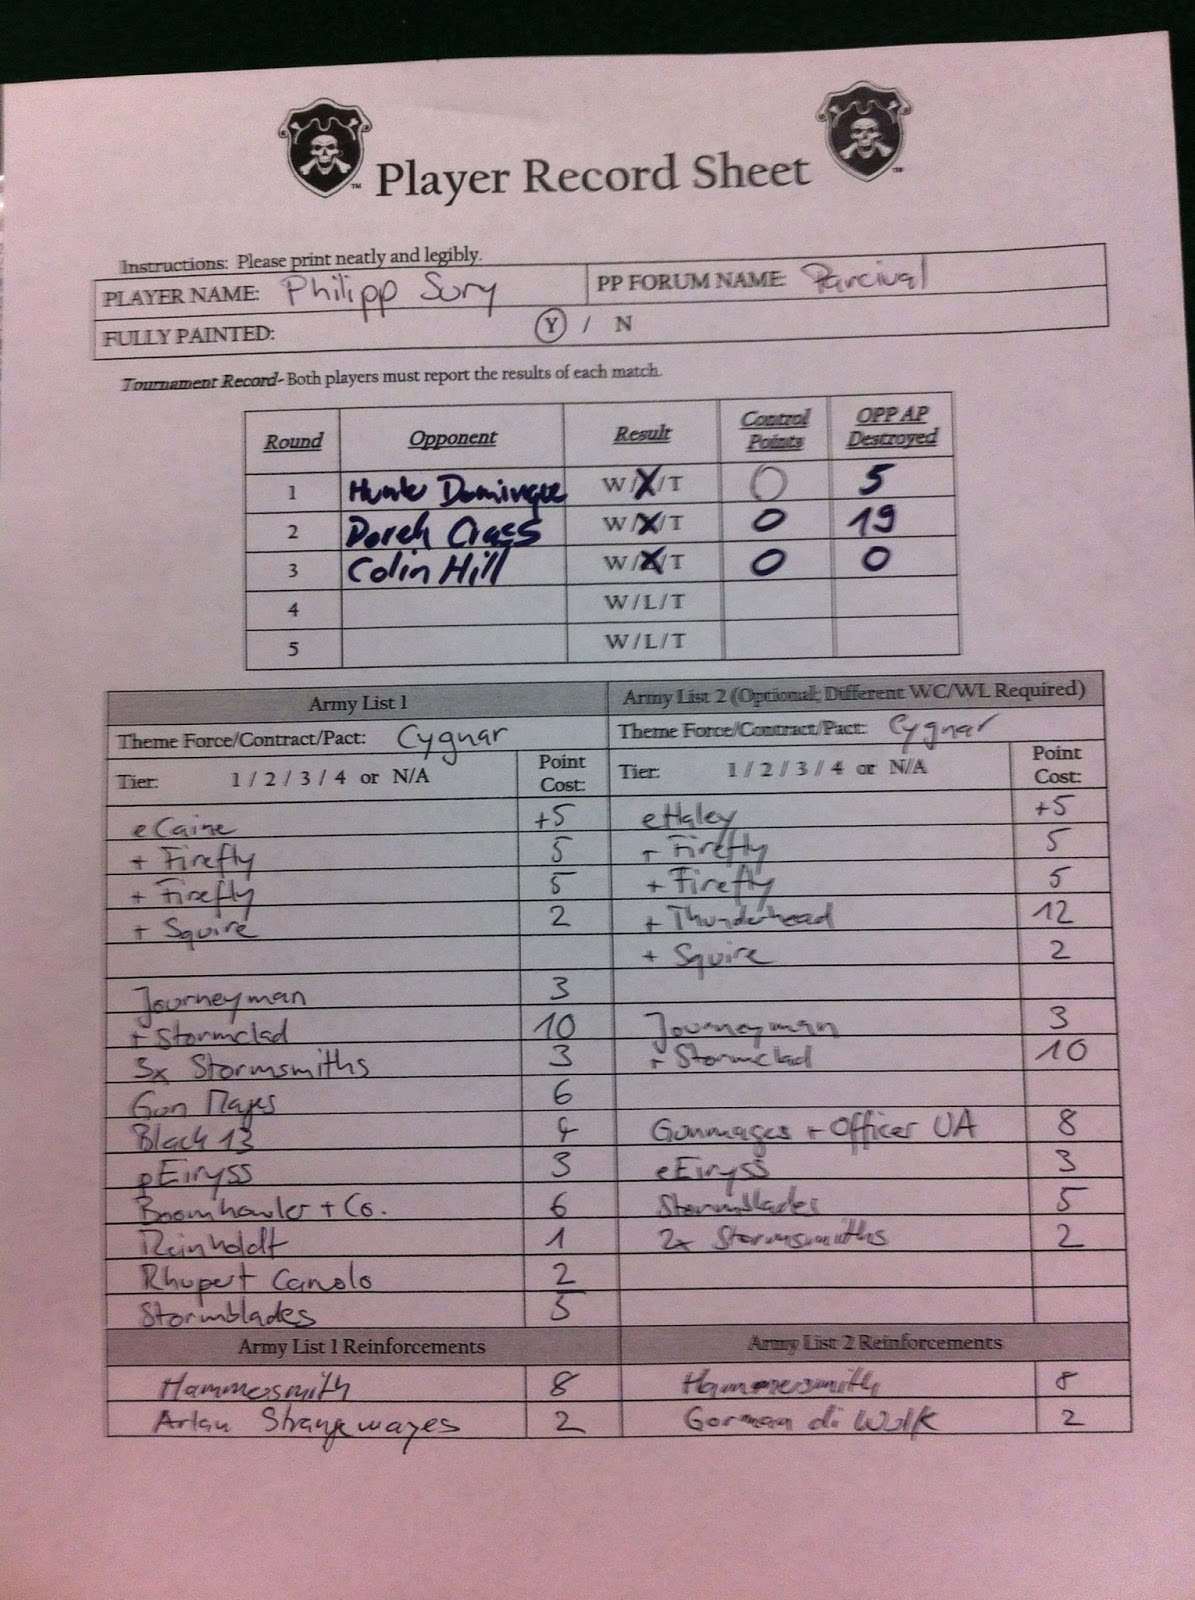 Player Record Sheet
Instructions: Please print neatly and legibly.
PLAYER NAME: Philipp Sury PP FORUM NAME: Parcival
FULLY PAINTED: Y / N
Tournament Record- Both players must report the results of each match.
Round Opponent Result Control Points OPP AP Destroyed
1 Domingue W/X/T 0 5
2 W/X/T 0 19
3 Colin Hill W/X/T 0 0
4 W/L/T
5 W/L/T
Army List 1 Army List 2 (Optional; Different WC/WL Required)
Theme Force/Contract/Pact: Cygnar Theme Force/Contract/Pact: Cygnar
Tier: 1 / 2 / 3 / 4 or N/A Point Cost: Tier: 1 / 2 / 3 / 4 or N/A Point Cost:
eCaine +5 eHaley +5
+ Firefly 5 + Firefly 5
+ Firefly 5 + Firefly 5
+ Squire 2 + Thunderhead 12
+ Squire 2
Journeyman 3
+ Stormclad 10 Journeyman 3
3x Stormsmiths 3 + Stormclad 10
Gun Mages 6
Black 13 4 Gunmages + Officer UA 8
pEiryss 3 eEiryss 3
Boomhowler + Co. 6 Stormblades 5
Reinholdt 1 2x Stormsmiths 2
Rhupert Carvolo 2
Stormblades 5
Army List 1 Reinforcements Army List 2 Reinforcements
Hammersmith 8 Hammersmith 8
Arlan Strangewayes 2 Gorman di Wulfe 2